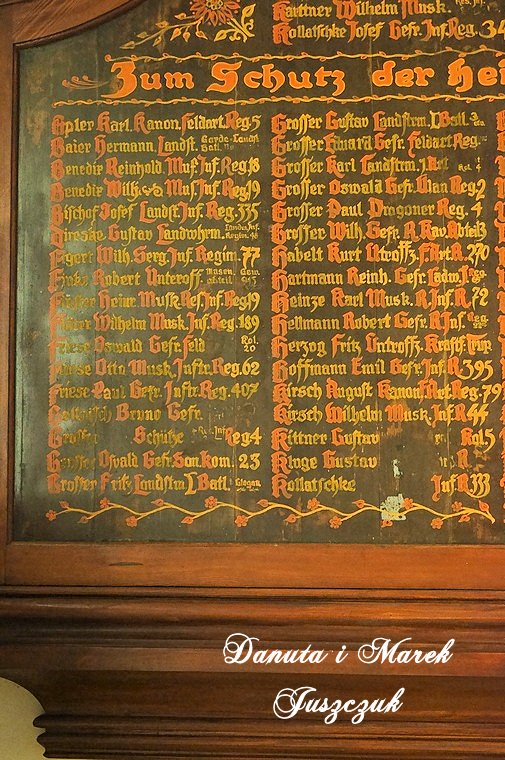 Karttner Wilhelm Musk. Res. Inf.
Kollatschke Josef Gefr. Inf. Reg. 34
Zum Schutz der Hei
Apler Karl Kanon. Feldart. Reg. 5
Baier Hermann Landst. Garde-Landst. Batl.
Benedir Reinhold Musk. Inf. Reg. 18
Benedir Wilh. Musk. Inf. Reg. 19
Bischof Josef Landst. Inf. Reg. 335
Gustav Landwhrm. Landw. Inf. Regim. 46
Egert Wilh. Serg. Inf. Regim. 77
Robert Unteroff. Masch. Gew. abteil.
Heinr. Musk. Ref. Inf. Reg. 19
Wilhelm Musk. Inf. Reg. 189
Friese Oswald Gefr. Feld Kol. 20
Friese Otto Musk. Inftr. Reg. 62
Friese Paul Gefr. Inftr. Reg. 407
Bruno Gefr.
Schütze Inf. Reg 4
Grosser Osvald Gefr. San. Kom. 23
Grosser Fritz Landstrm. I. Batl. Glogau
Grosser Gustav Landstrm. I. Batl.
Grosser Eduard Gefr. Feldart Reg.
Grosser Karl Landstrm.
Grosser Oswald Gefr. Ulan Reg. 2
Grosser Paul Dragoner Reg. 4
Grosser Wilh. Gefr. R. Kav. Abteil 3
Habelt Kurt Utroffz. F. Art. R. 270
Hartmann Reinh. Gefr. Ldw. J.
Heinze Karl Musk. R. Jf. R. 72
Hellmann Robert Gefr. R. Inf. Reg.
Herzog Fritz Untroffz. Kraftf. Trup.
Hoffmann Emil Gefr. Inf. R. 395
Kirsch August Kanon. F. Art. Reg. 79
Kirsch Wilhelm Musk. Inf. R. 44
Kittner Gustav Rgl. 5
Kluge Gustav R
Kollatschke Inf. R. 333
Danuta i Marek
Juszczuk